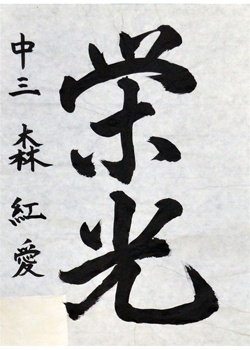 栄光
中三 森 紅愛